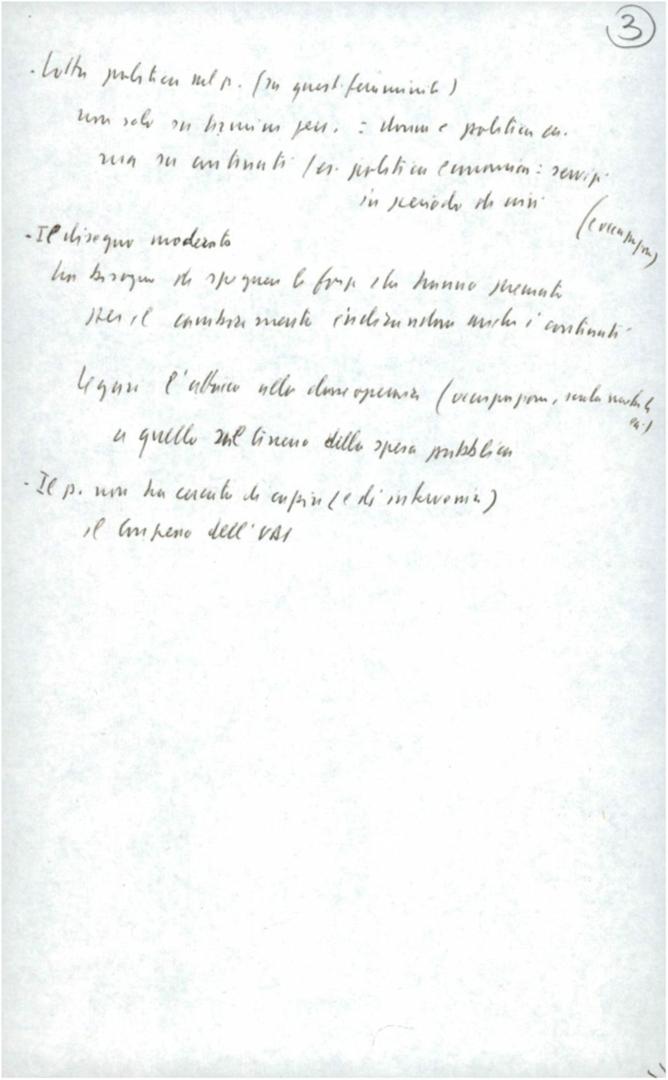 3
- Lotta politica nel p. (su quest. femminile)
non solo su termini gen. : donne e politica ec.
ma su contenuti (es. politica economica : servizi
in periodo di crisi
(e occupazion)
- Il disegno moderato
ha bisogno di spegnere le forze che hanno premuto
per il cambiamento anche i contenuti
legare l'attacco alle donne operaie (occupazione,
a quello sul terreno della spesa pubblica
- Il p. non ha cercato di capire (e di intervenire)
il Congresso dell'UDI